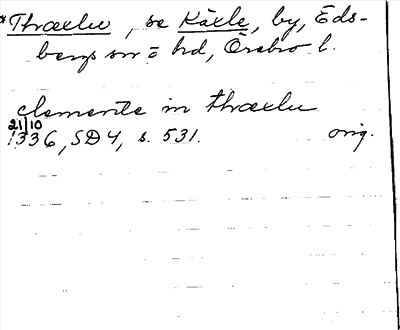 *Thræelu, se Käxle, by, Eds-
bergs sn o hd, Örebro l.
clemente in thræelu
21/10
1336, SD 4, s. 531. orig.